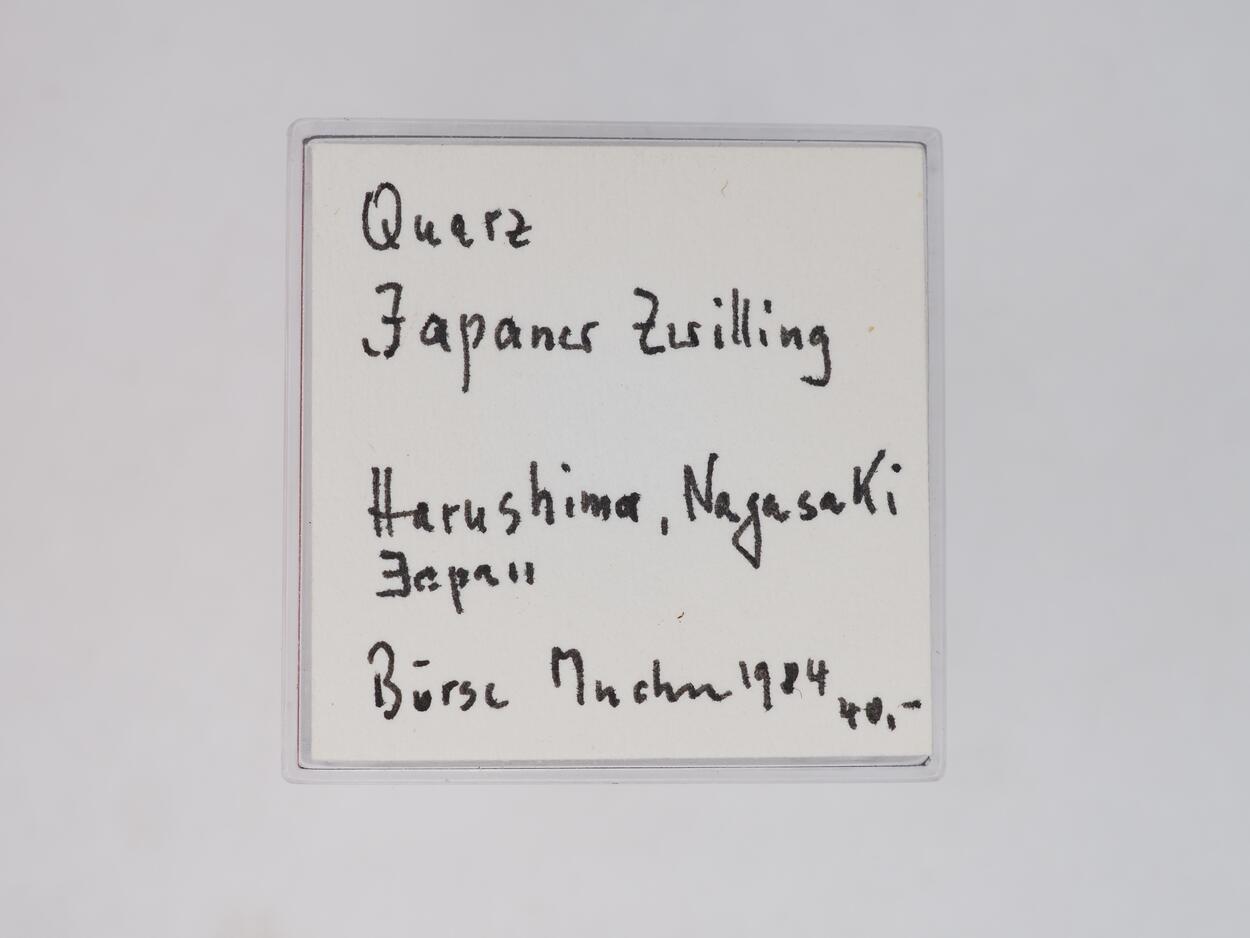 Quarz
Japaner Zwilling
Harushima, Nagasaki
Japan
Börse Munchn 1984 40,-